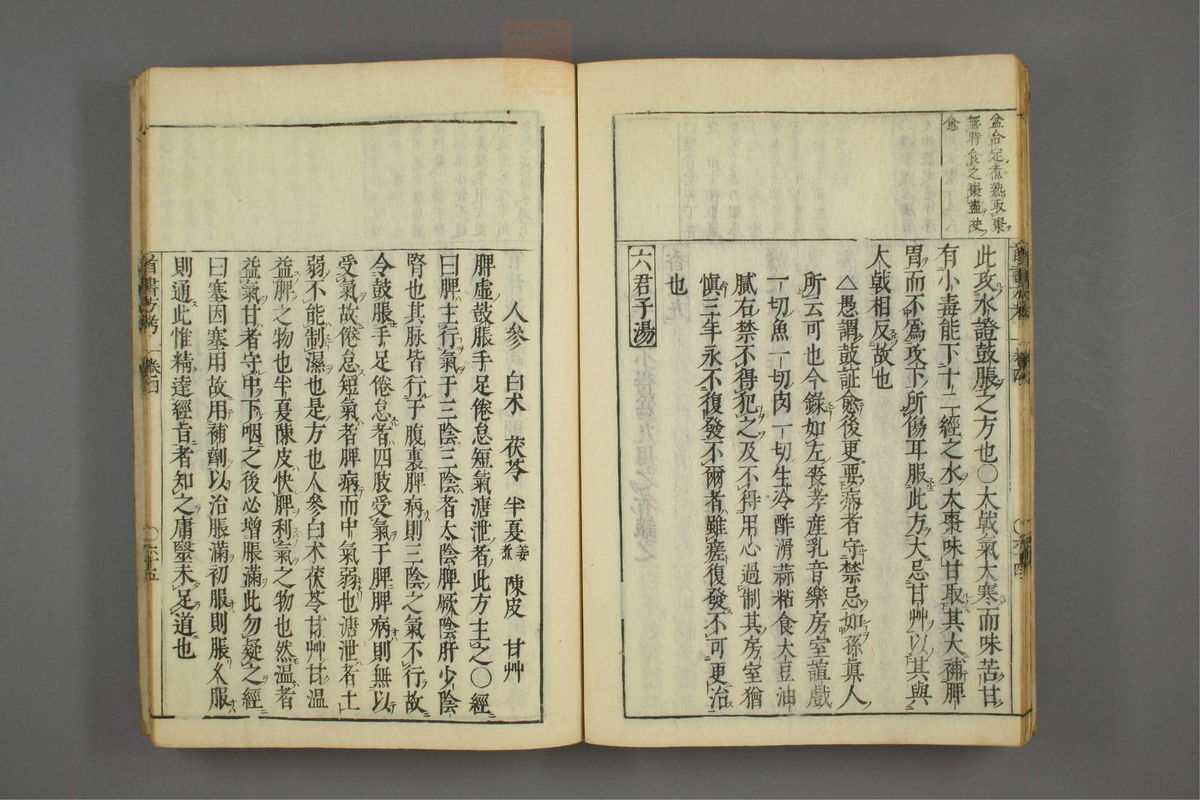 盆合定煮熟取棗
無時食之棗盡決
愈
此攻水證鼓脹之方也〇大戟氣大寒而味苦甘
有小毒能下十二經之水大棗味甘取其大補脾
胃而不爲攻下所傷耳服此方大忌甘艸以其與
大戟相反故也
△愚謂鼓証愈後更要病者守禁忌如孫眞人
所云可也今錄如左喪孝産乳音樂房室諠戲
一切魚一切肉一切生冷酢滑蒜粘食大豆油
膩右禁不得犯之及不得用心過制其房室猶
愼三年永不復發不爾者雖瘥復發不可更治
也
六君子湯
人參 白朮 茯苓 半夏姜煮 陳皮 甘艸
脾虛鼓脹手足倦怠短氣溏泄者此方主之〇經
曰脾主行氣于三陰三陰者太陰脾厥陰肝少陰
腎也其脉皆行于腹裏脾病則三陰之氣不行故
令鼓脹手足倦怠者四肢受氣于脾脾病則無以
受氣故倦怠短氣者脾病而中氣弱也溏泄者土
弱不能制濕也是方也人參白朮茯苓甘艸甘溫
益脾之物也半夏陳皮快脾利氣之物也然溫者
益氣甘者守中下咽之後必增脹滿此勿疑之經
曰塞因塞用故用補劑以治脹滿初服則脹久服
則通此惟精達經旨者知之庸醫未足道也
卷四